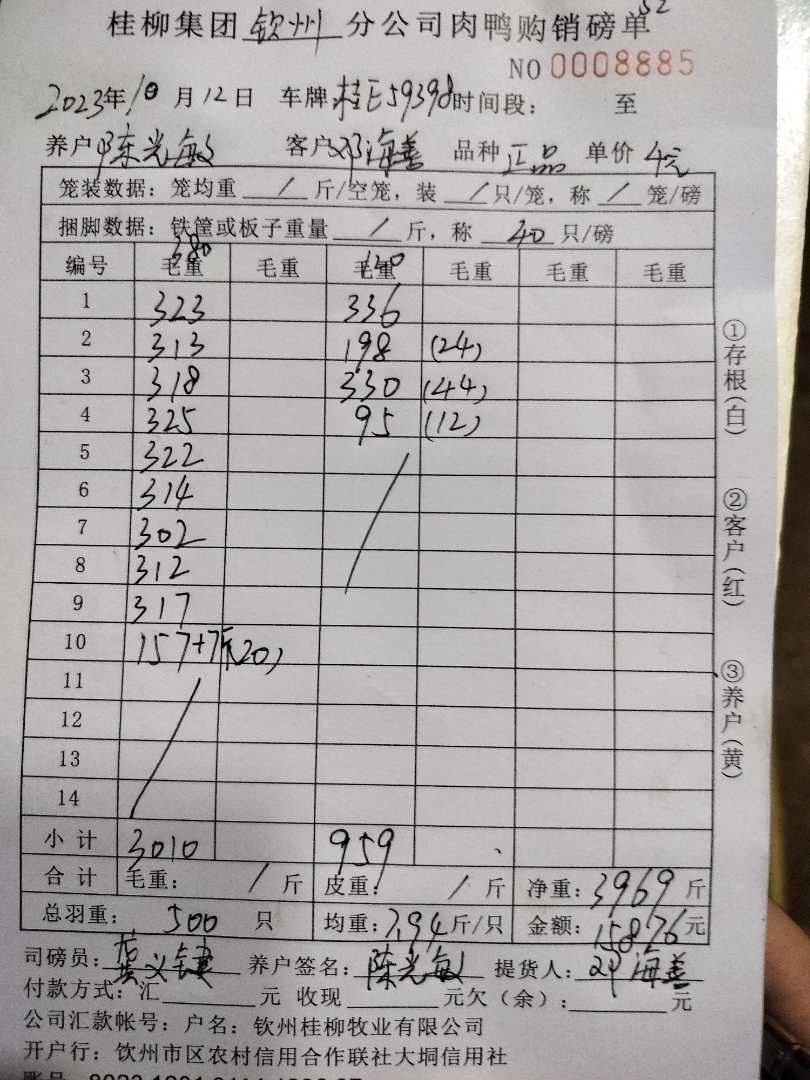 桂柳集团 钦州 分公司肉鸭购销磅单 52
NO 0008885
2023年10月12日 车牌桂E59398时间段： 至
养户陈光敏 客户邓海善 品种 正品 单价 4元
笼装数据：笼均重 / 斤/空笼，装 / 只/笼，称 / 笼/磅
捆脚数据：铁筐或板子重量 / 斤，称 40 只/磅
380 120
编号 毛重 毛重 毛重 毛重 毛重 毛重
1 323 336
2 313 198 (24)
3 318 330 (44)
4 325 95 (12)
5 322
6 314
7 302
8 312
9 317
10 157+7斤(20)
11
12
13
14
小计 3010 959
合计 毛重： / 斤 皮重： / 斤 净重：3969 斤
总羽重： 500 只 均重：7.94斤/只 金额：15876元
司磅员：黄义健 养户签名：陈光敏 提货人：邓海善
付款方式：汇 元 收现 元欠（余）： 元
公司汇款帐号：户名：钦州桂柳牧业有限公司
开户行：钦州市区农村信用合作联社大垌信用社
①存根（白）
②客户（红）
③养户（黄）